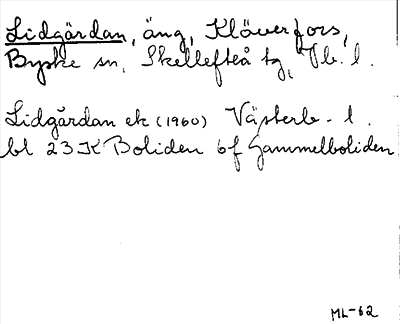 Lidgärdan, äng, Klöverfors,
Byske sn, Skellefteå tg, Vb. l.
Lidgärdan ek (1960) Västerb. l.
bl 23 K Boliden 6f Gammelboliden
ML-62